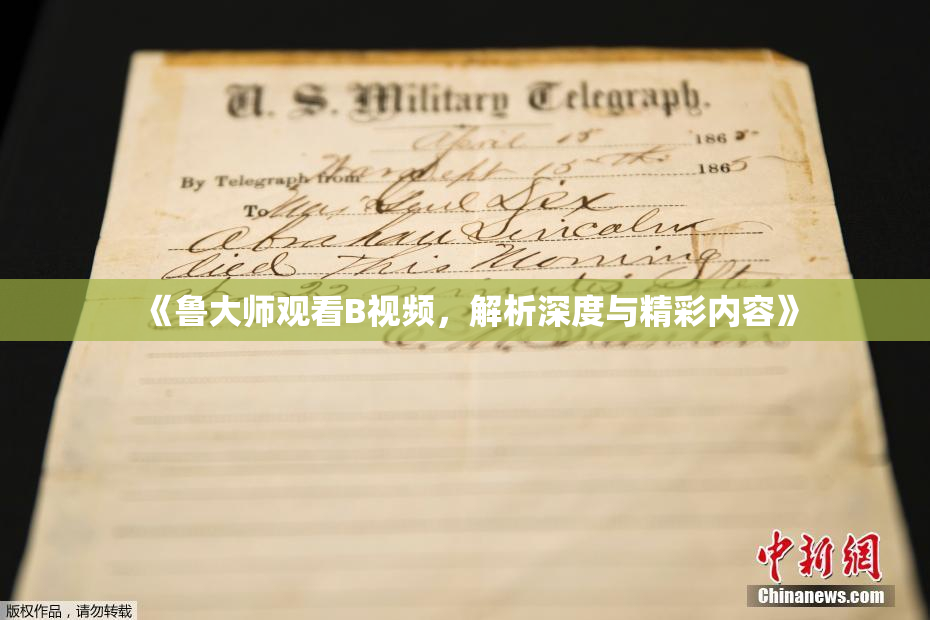 U. S. Military Telegraph.
April 15 1865.
By Telegraph from War Dept 15th 1865
To Maj Genl Dix
Abraham Lincoln
died This Morning
at 22 minutes after
《鲁大师观看B视频，解析深度与精彩内容》
E. M. Stanton
中新网
Chinanews.com
版权作品，请勿转载